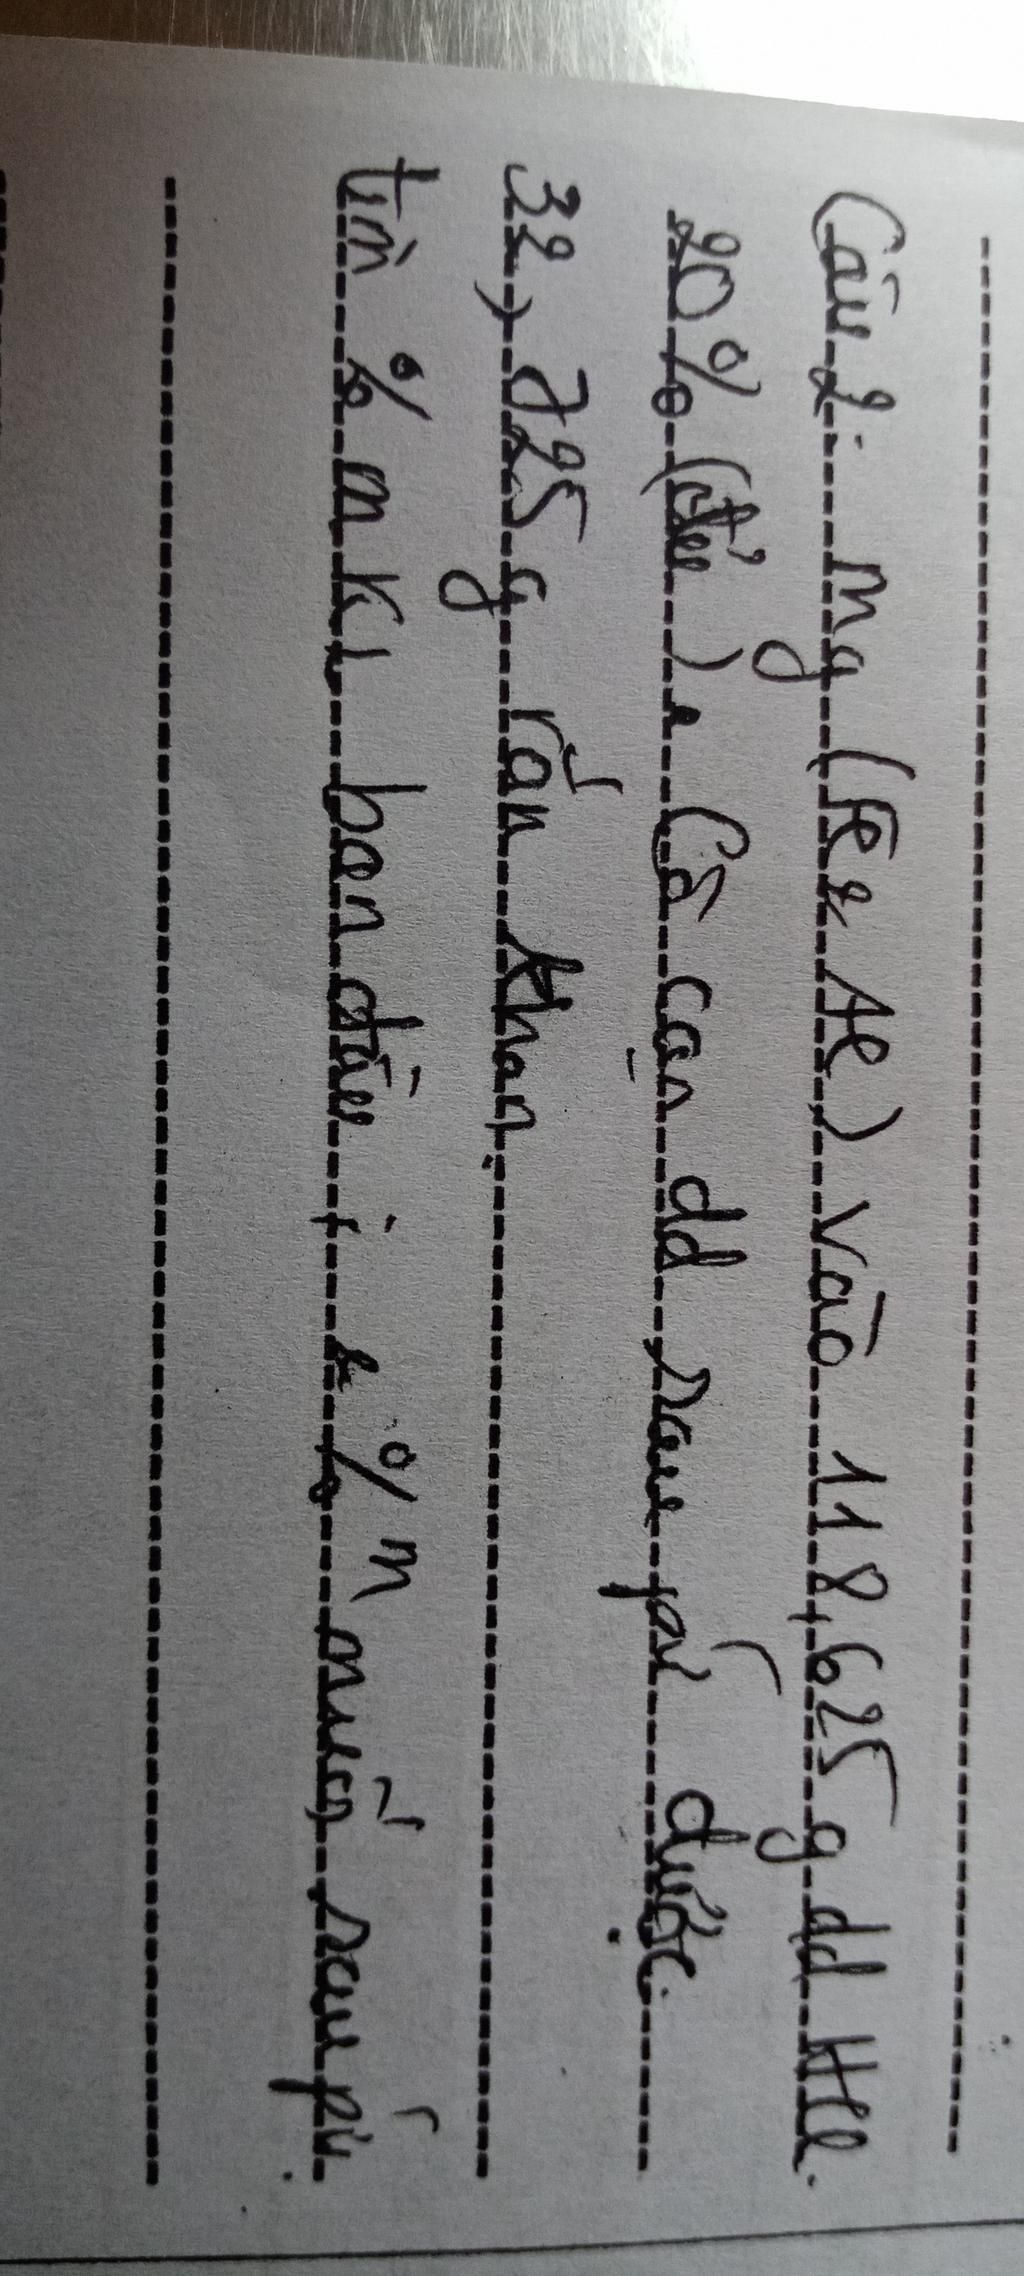 Câu 2: mg (Fe & Al) vào 118,625 g dd HCl
20% (đủ). Cô cạn dd sau pứ được
32,725 g rắn khan.
tìm % m KL ban đầu; & % m muối sau pứ.